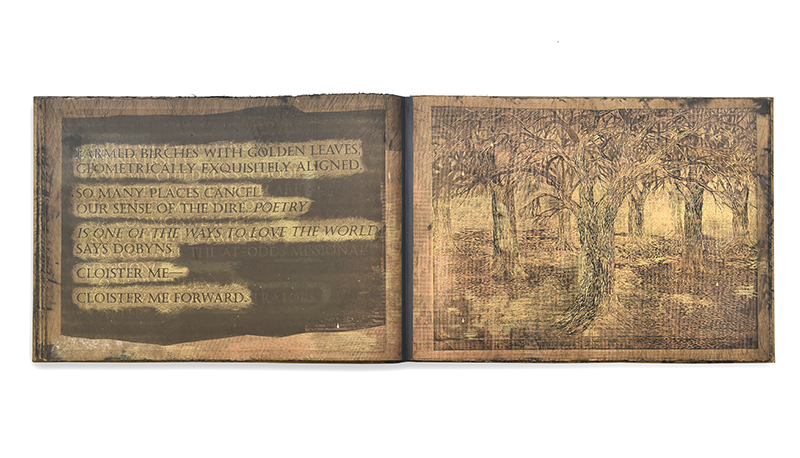 FARMED BIRCHES WITH GOLDEN LEAVES,
GEOMETRICALLY EXQUISITELY ALIGNED.
SO MANY PLACES CANCEL
OUR SENSE OF THE DIRE. POETRY
IS ONE OF THE WAYS TO LOVE THE WORLD
SAYS DOBYNS. THE AT-ODDS MISSIONARY
CLOISTER ME—
CLOISTER ME FORWARD.